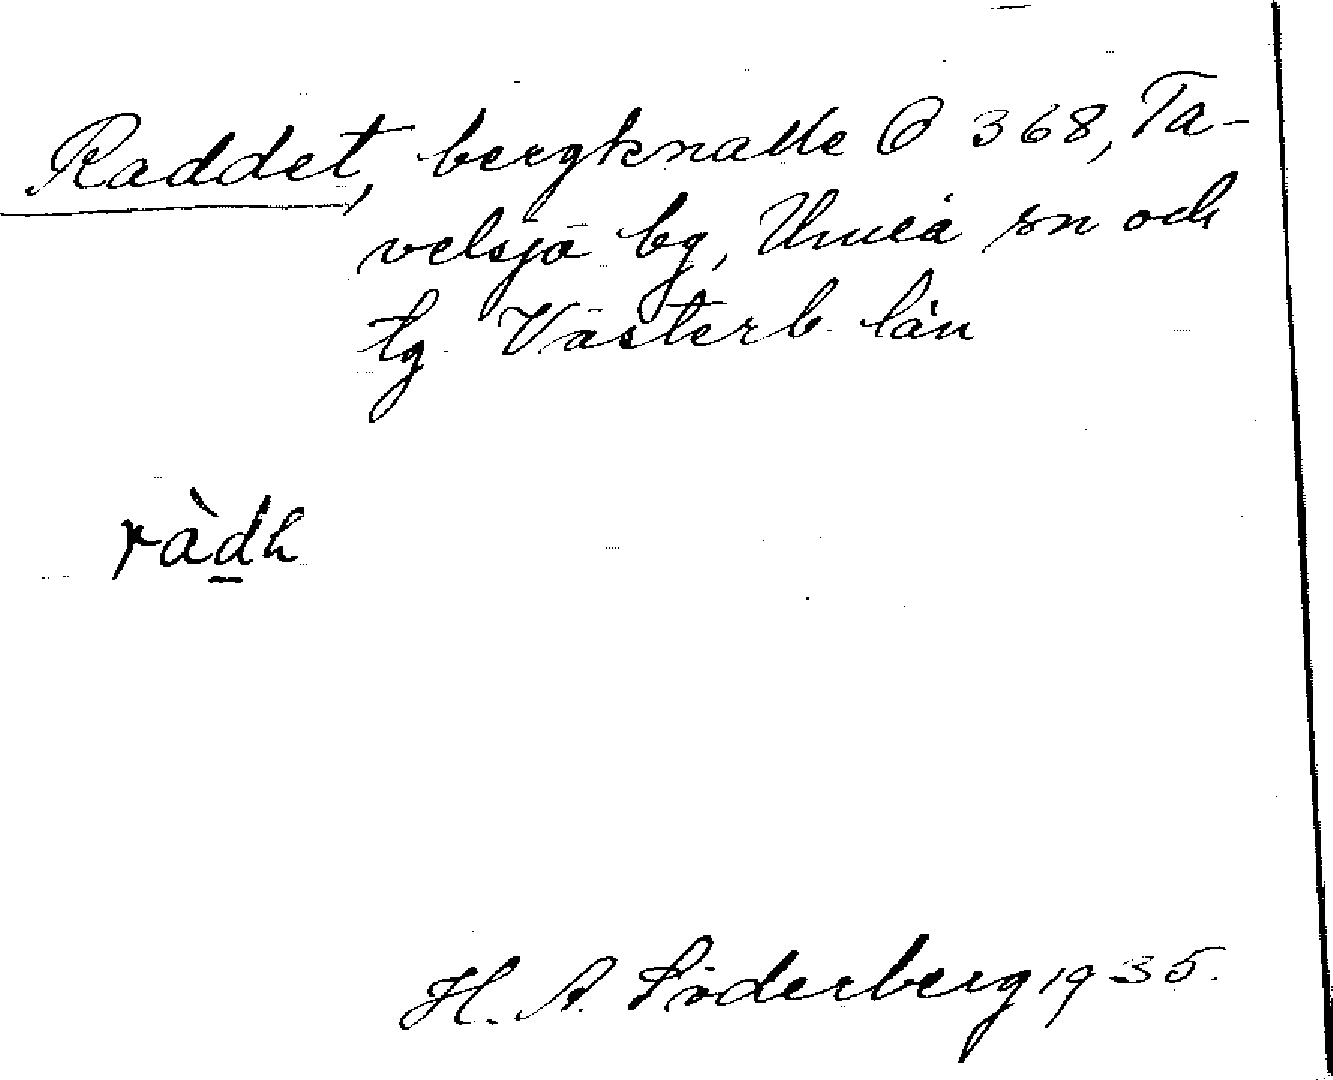 Raddet, bergknalle Ö 368, Ta-
velsjö bg, Umeå sn och
tg Västerb. län
ràd̲h
H. A. Söderberg 1935.